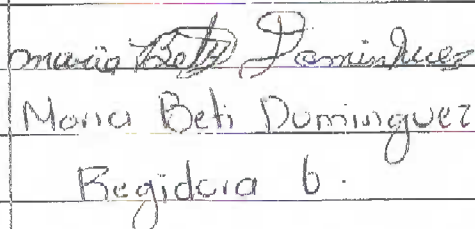 maria Betty Dominguez
Maria Beti Dominguez
Regidora 6.